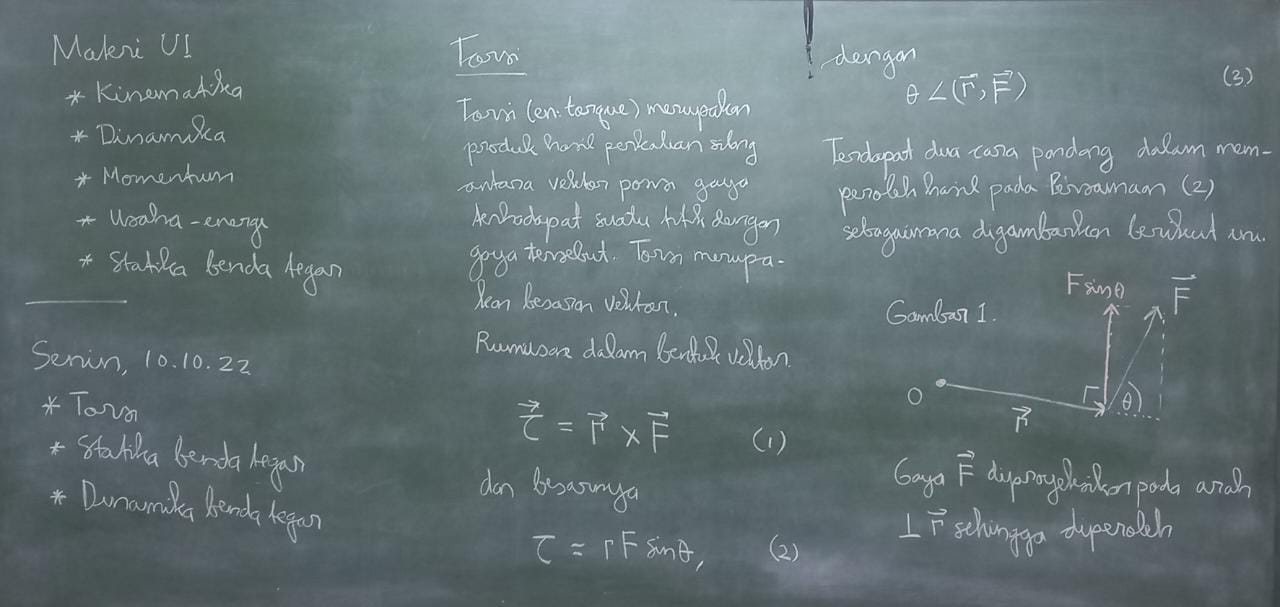 Materi U1
* Kinematika
* Dinamika
* Momentum
* Usaha-energi
* Statika benda tegar
Senin, 10.10.22
* Torsi
* Statika benda tegar
* Dinamika benda tegar
Torsi
Torsi (en: torque) merupakan
produk hasil perkalian silang
antara vektor posisi gaya
terhadapat suatu titik dengan
gaya tersebut. Torsi merupa-
kan besaran vektor.
Rumusan dalam bentuk vektor.
τ⃗ = r⃗ × F⃗ (1)
dan besarnya
τ = r F sin θ, (2)
dengan
θ ∠(r⃗, F⃗) (3)
Terdapat dua cara pandang dalam mem-
peroleh hasil pada Persamaan (2)
sebagaimana digambarkan berikut ini.
Gambar 1.
F sin θ
F⃗
O
r⃗
θ
Gaya F⃗ diproyeksikan pada arah
⊥ r⃗ sehingga diperoleh